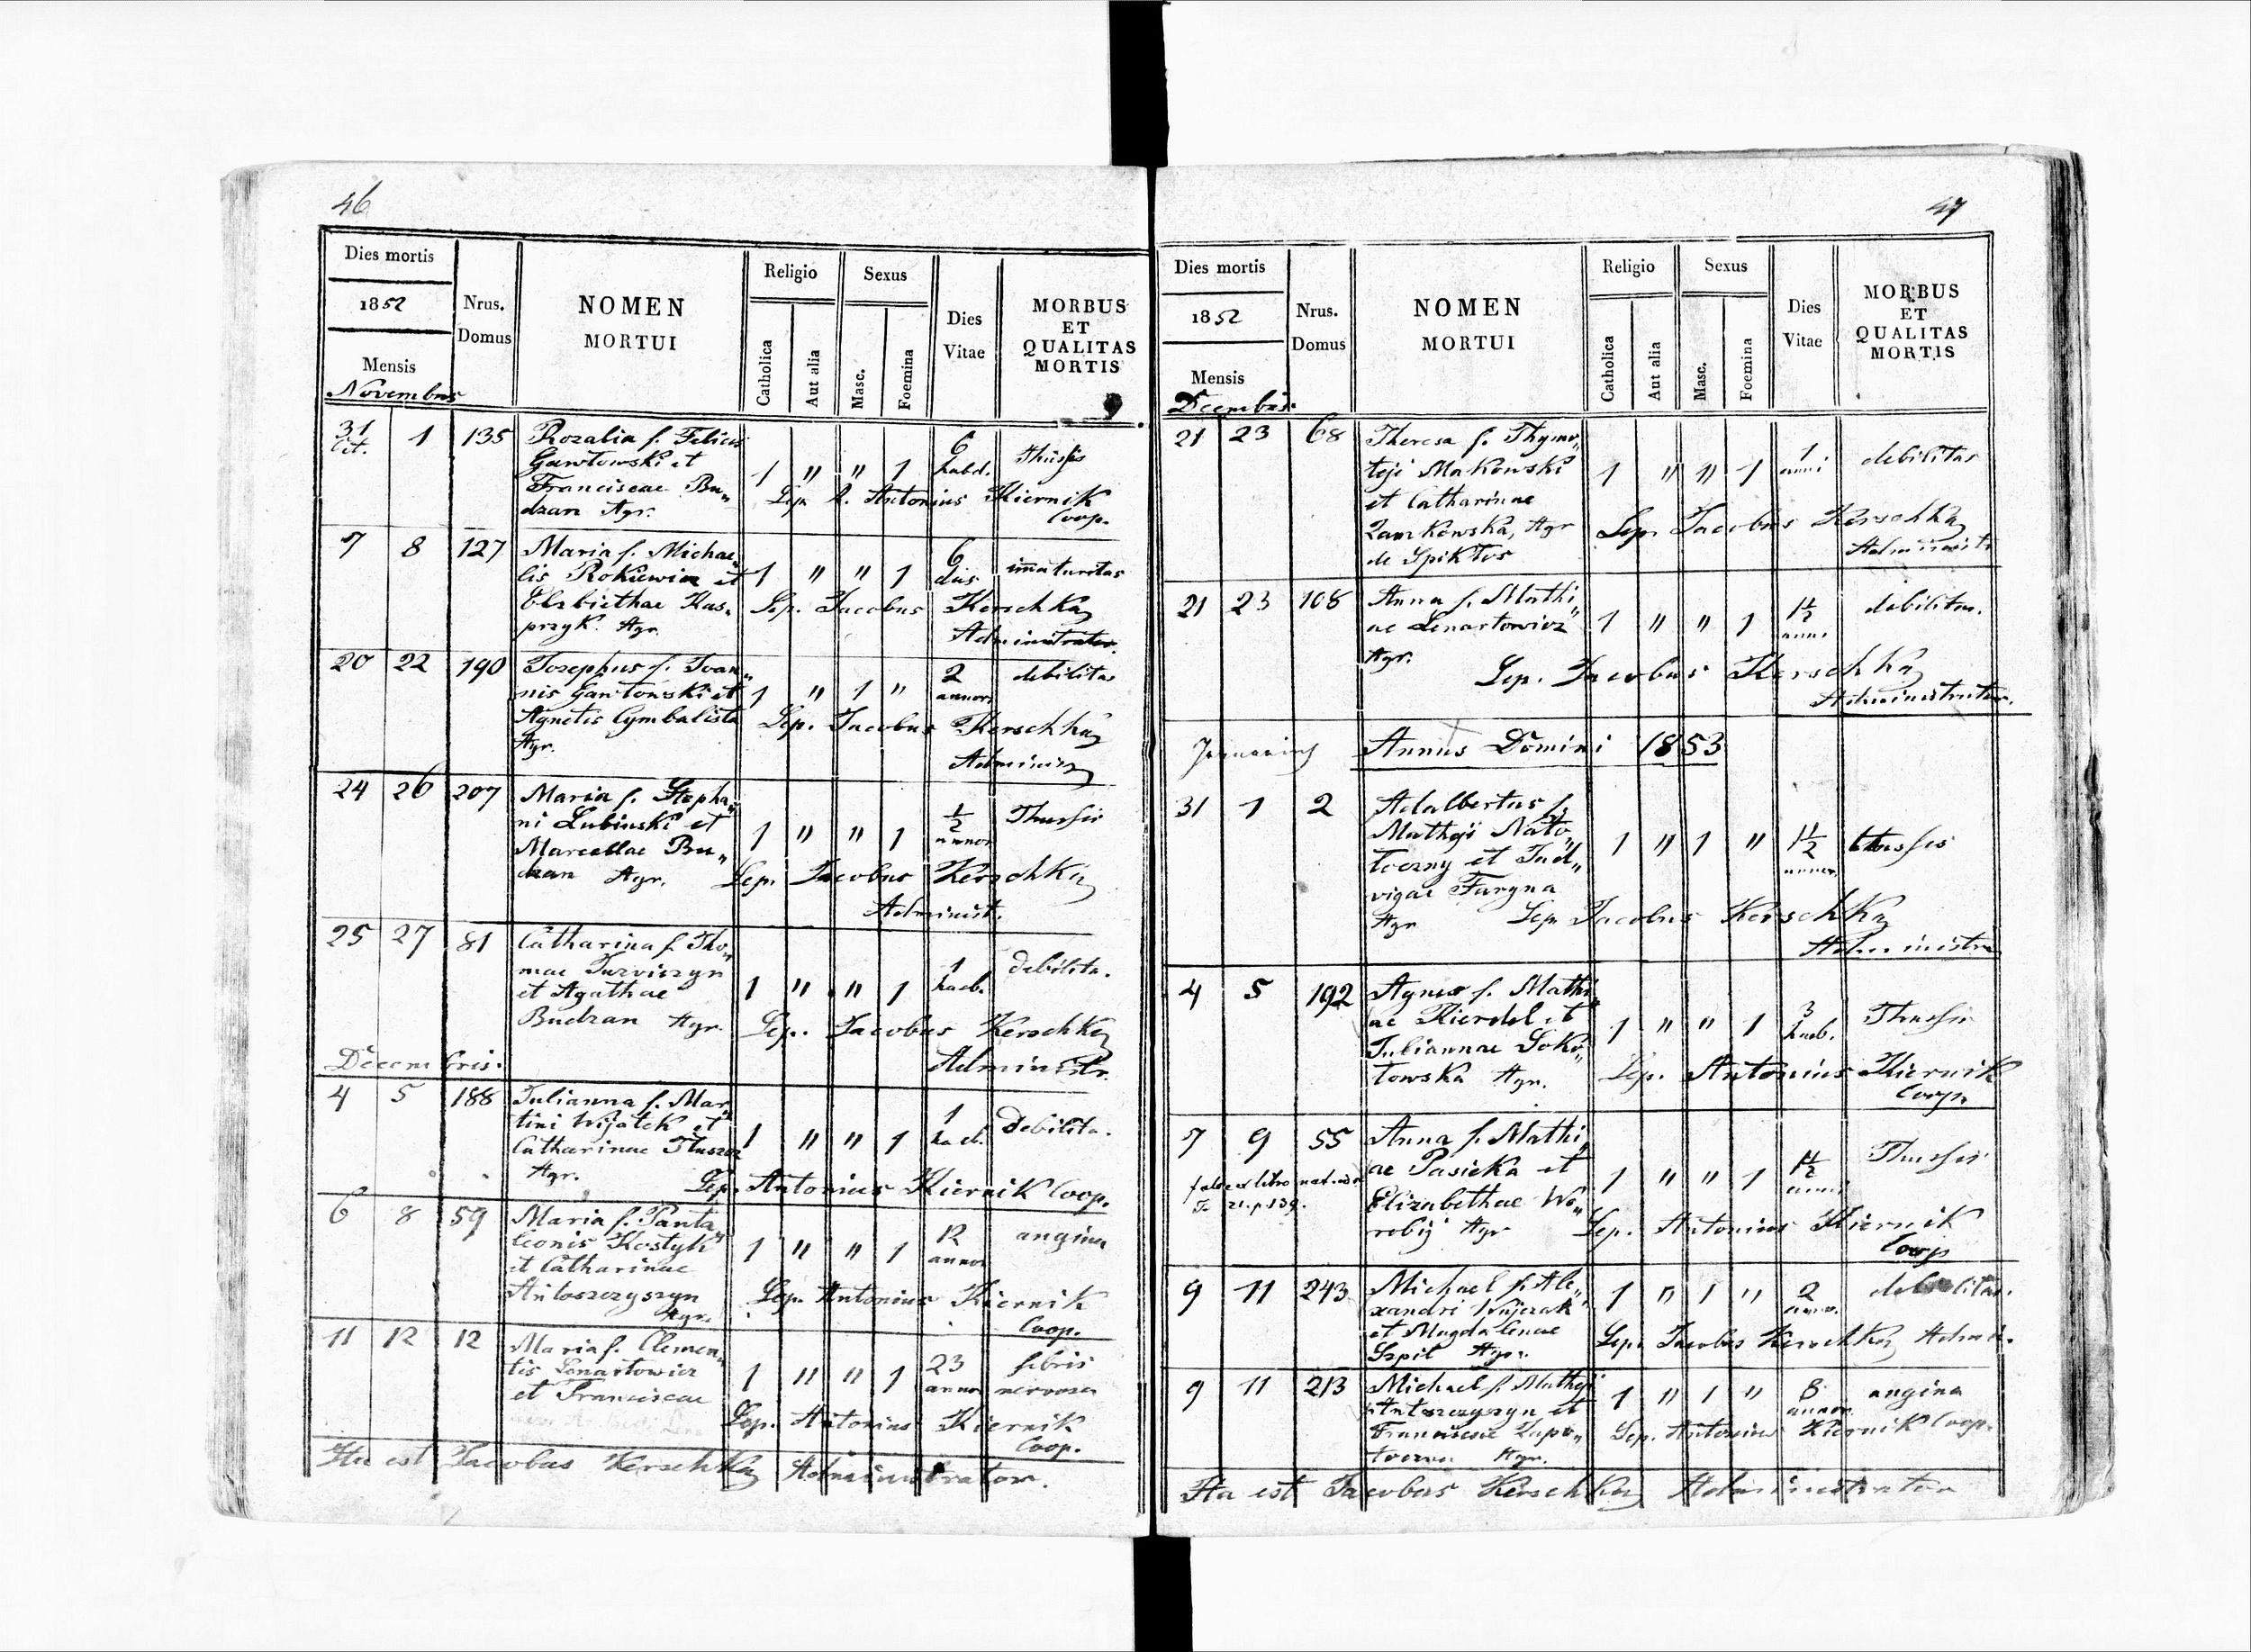 46
Dies mortis
1852
Mensis
Novembris
Nrus.
Domus
NOMEN
MORTUI
Religio
Catholica
Aut alia
Sexus
Masc.
Foemina
Dies
Vitae
MORBUS
ET
QUALITAS
MORTIS
31 1 135 Rozalia f. Felicis
Oct.
Gawłowski et
Franciscae Bu„
dzan Agr.
1 " " 1 6 hebd. thussis
Sep. R. Antonius Kiernik
Coop.
7 8 127 Maria f. Michae„
lis Rokiewicz et
Elzbiethae Kas„
przyk. Agr.
1 " " 1 6 dies immaturitas
Sep. Jacobus Kerschka
Administrator.
20 22 190 Josephus f. Joan„
nis Gawłowski et
Agnetis Cymbalista
Agr.
1 " 1 " 2 annor. debilitas
Sep. Jacobus Kerschka
24 26 207 Maria f. Stepha„
ni Lubinski et
Marcellae Bu„
dzan Agr.
1 " " 1 1/2 annor Thussis
Sep. Jacobus Kerschka
Administ.
25 27 81 Catharina f. Tho„
mae
et Agathae
Budzan Agr.
1 " " 1 1 haeb. debilita.
Sep. Jacobus Kerschka
Administr.
Decembris.
4 5 188 Julianna f. Mar„
tini Wijatek et
Catharinae
Agr.
1 " " 1 1 haeb. Debilita.
Sep. Antonius Kiernik Coop.
6 8 59 Maria f. Panta„
leonis Kostyk
et Catharinae
Antoszczyszyn
Agr.
1 " " 1 12 annor angina
Sep. Antonius Kiernik
Coop.
11 12 12 Maria f. Clemen„
tis Lenartowicz
et Franciscae
1 " " 1 23 annor febris
nervosa
Sep. Antonius Kiernik
Coop.
Ita est Jacobus Kerschka Administrator.
47
Dies mortis
1852
Mensis
Decembris.
Nrus.
Domus
NOMEN
MORTUI
Religio
Catholica
Aut alia
Sexus
Masc.
Foemina
Dies
Vitae
MORBUS
ET
QUALITAS
MORTIS
21 23 68 Theresa f. Thymo„
teji Makowski
et Catharinae
Zamkowska, Agr
de Spiktos
1 " " 1 1 anni debilitas
Sep. Jacobus Kerschka
21 23 108 Anna f. Mathi„
ae Lenartowicz
Agr.
1 " " 1 1 1/2 anni debilitas.
Sep. Jacobus Kerschka
Administrator.
Januarius Annus Domini 1853
31 1 2 Adalbertus f.
Mathei Nato„
toczny et Jud„
vigae Furgna
Agr
1 " 1 " 1 1/2 annor. thussis
Sep Jacobus Kerschka
4 5 192 Agnes f. Mathi„
ae Kierdel et
Juliannae Soko„
łowska Agr.
1 " " 1 3 haeb. Thussis
Sep. Antonius Kiernik
Coop.
7 9 55 Anna f. Mathi„
ae Pasieka et
Elizabethae Wo„
robij Agr
1 " " 1 1 1/2 anni Thussis
Sep. Antonius Kiernik
Coop
9 11 243 Michael f. Ale„
xandri Wujczak
et Magdalenae
Szpil Agr.
1 " 1 " 2 debilitas.
Sep. Jacobus Kerschka
9 11 213 Michael f. Mathei
Antoszczyszyn et
Franciscae
Agr.
1 " 1 " 8 annor. angina
Sep. Antonius Kiernik Coop.
Ita est Jacobus Kerschka Administrator